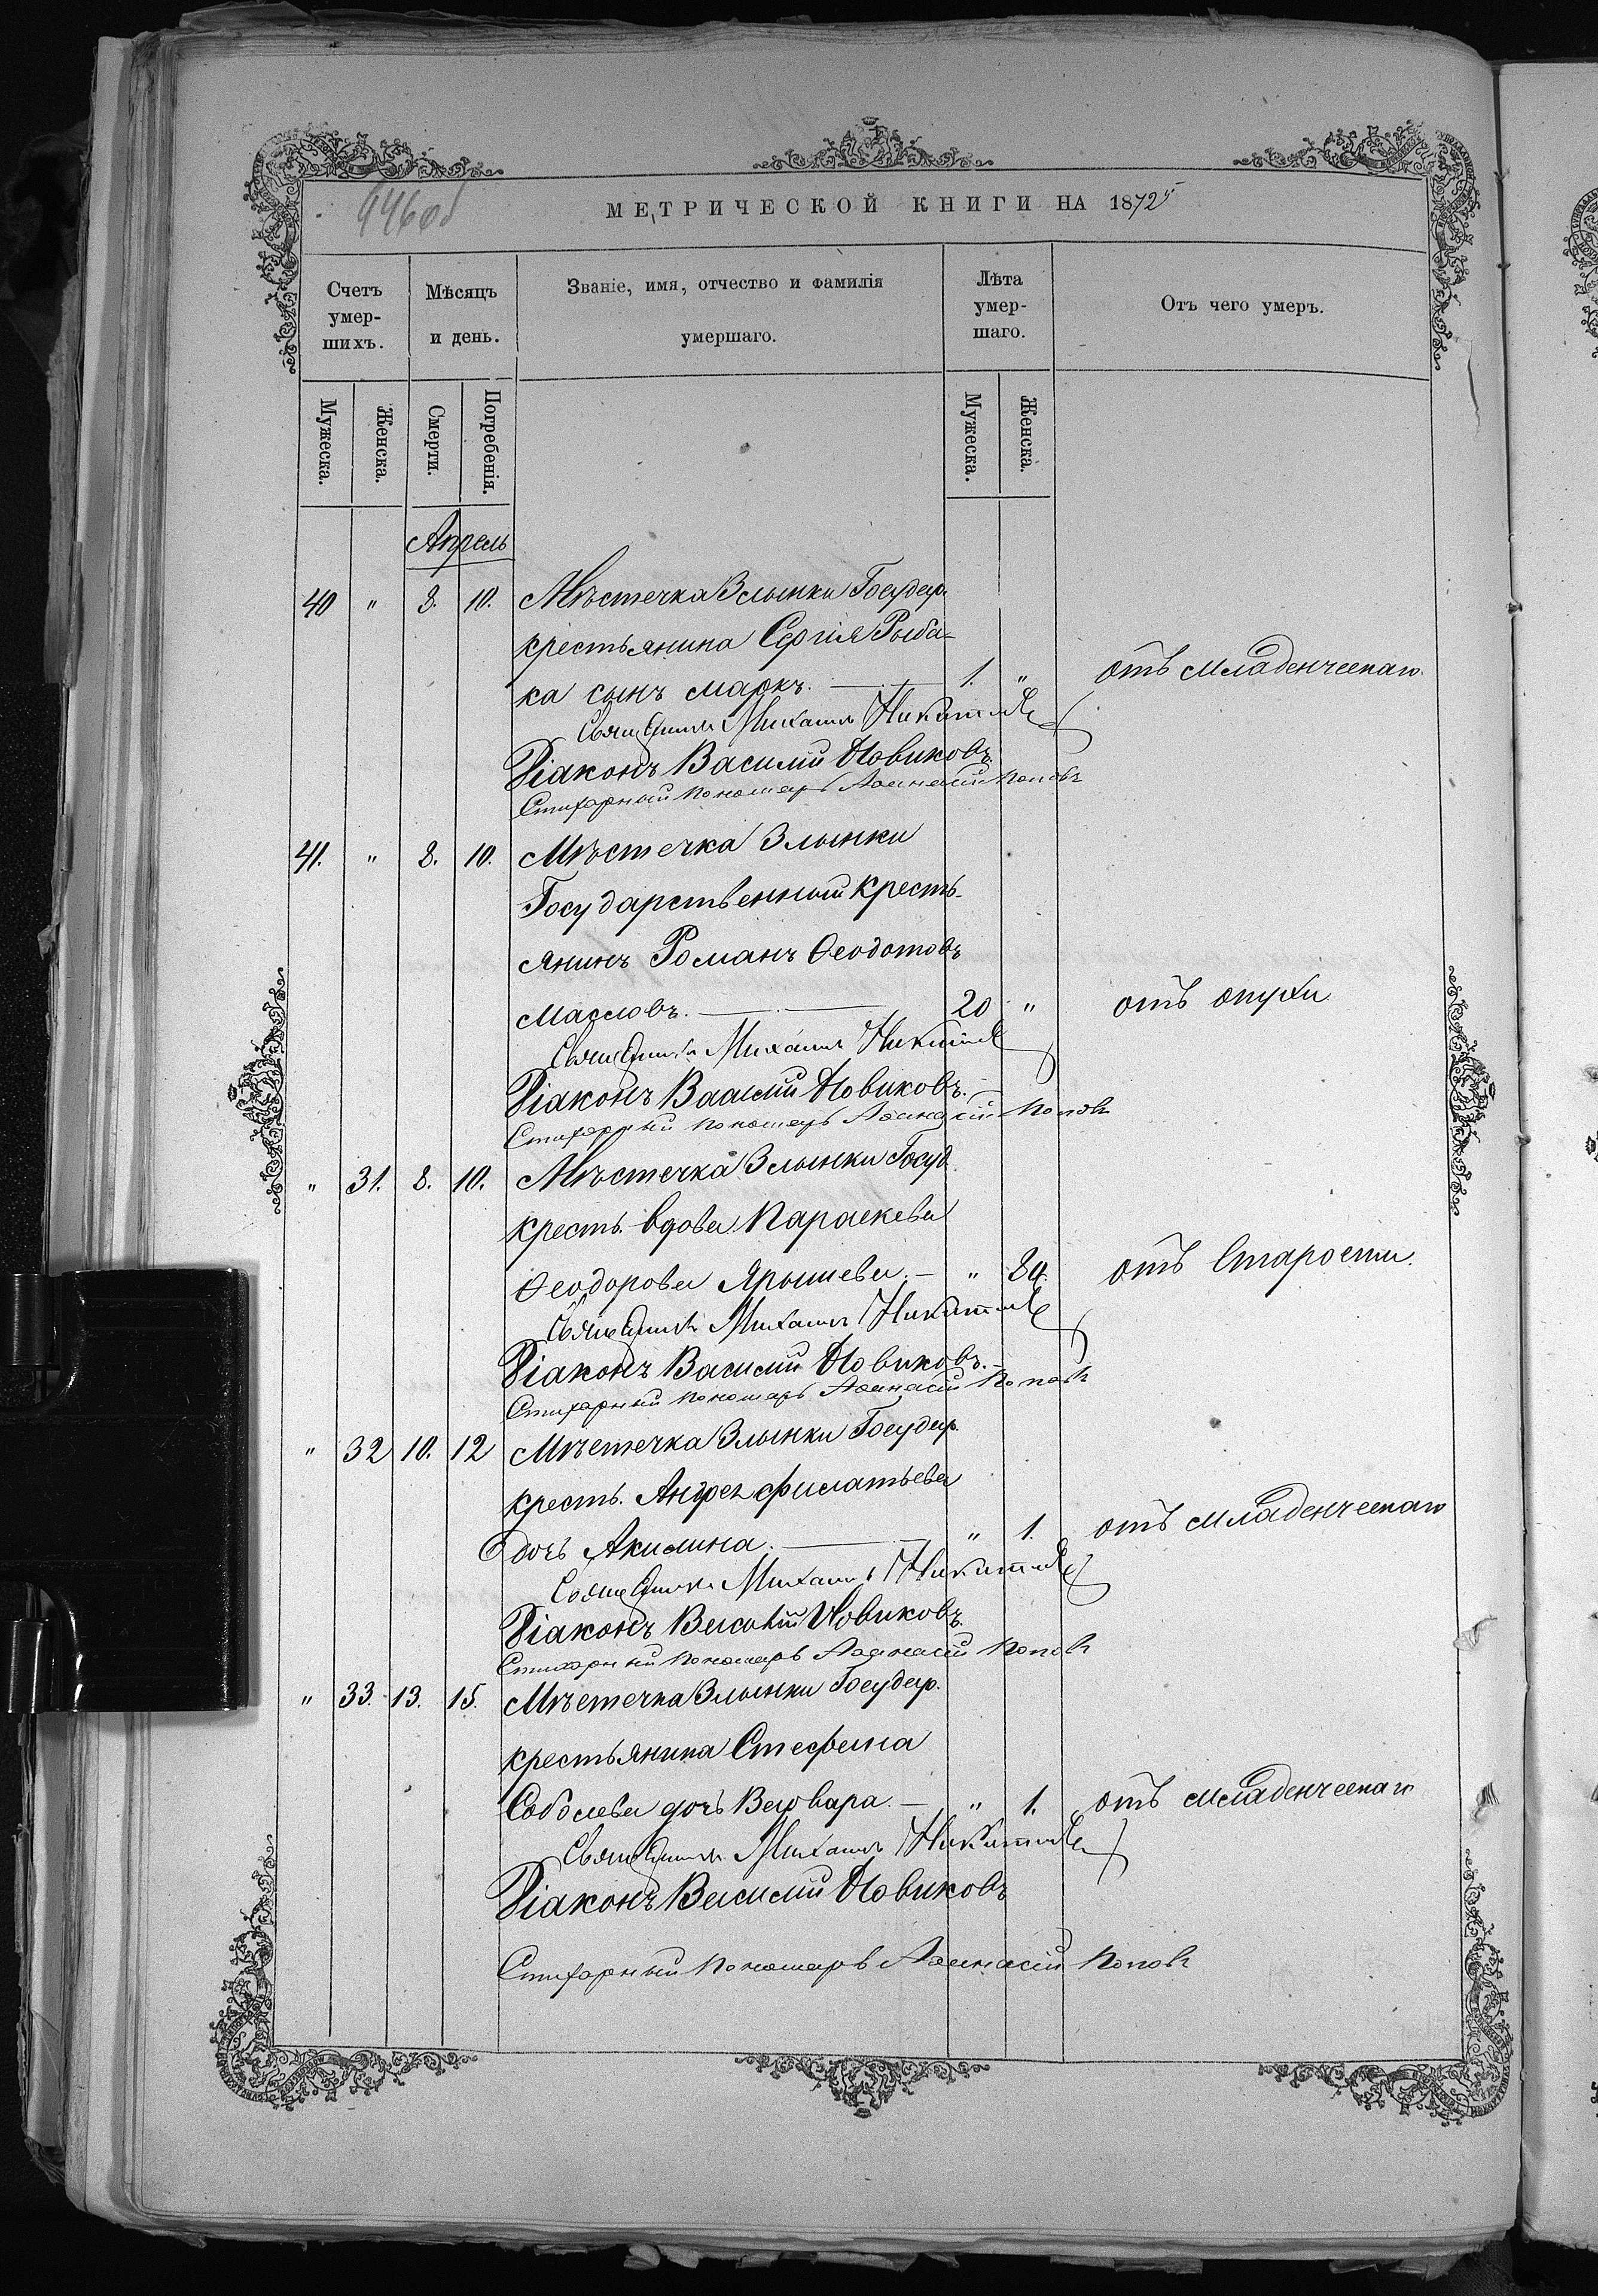 446об
МЕТРИЧЕСКОЙ КНИГИ НА 1872
Счетъ умер-шихъ.
Мѣсяцъ и день.
Званіе, имя, отчество и фамилія умершаго.
Лѣта умер-шаго.
Отъ чего умеръ.
Мужеска. Женска. Смерти. Погребенія. Мужеска. Женска.
Апрель
40 " 8. 10. Мѣстечка Злынки Государ.
крестьянина Сергія Рыба-
ка сынъ Маркъ. 1. " отъ младенческаго.
Священникъ Михаилъ Никитинъ
Діаконъ Василій Новиковъ.
Стихарный Пономарь Аѳанасій Поповъ
41. " 8. 10. Мѣстечка Злынки
Государственный кресть-
янинъ Романъ Ѳеодотовъ
Масловъ. 20 " отъ опухи
Священникъ Михаилъ Никитинъ
Діаконъ Василій Новиковъ.
Стихарный Пономарь Аѳанасій Поповъ
" 31. 8. 10. Мѣстечка Злынки Госуд.
кресть. вдова Параскева
Ѳеодорова Ярышева. " 84. отъ Старости.
Священникъ Михаилъ Никитинъ
Діаконъ Василій Новиковъ.
Стихарный Пономарь Аѳанасій Поповъ
" 32 10. 12 Мѣстечка Злынки Государ.
кресть. Андрея Филатьева
дочь Акилина. " 1. отъ младенческаго
Священникъ Михаилъ Никитинъ
Діаконъ Василій Новиковъ.
Стихарный Пономарь Аѳанасій Поповъ
" 33. 13. 15. Мѣстечка Злынки Государ.
крестьянина Стефана
Соболева дочь Варвара. " 1. отъ младенческаго
Священникъ Михаилъ Никитинъ
Діаконъ Василій Новиковъ
Стихарный Пономарь Аѳанасій Поповъ